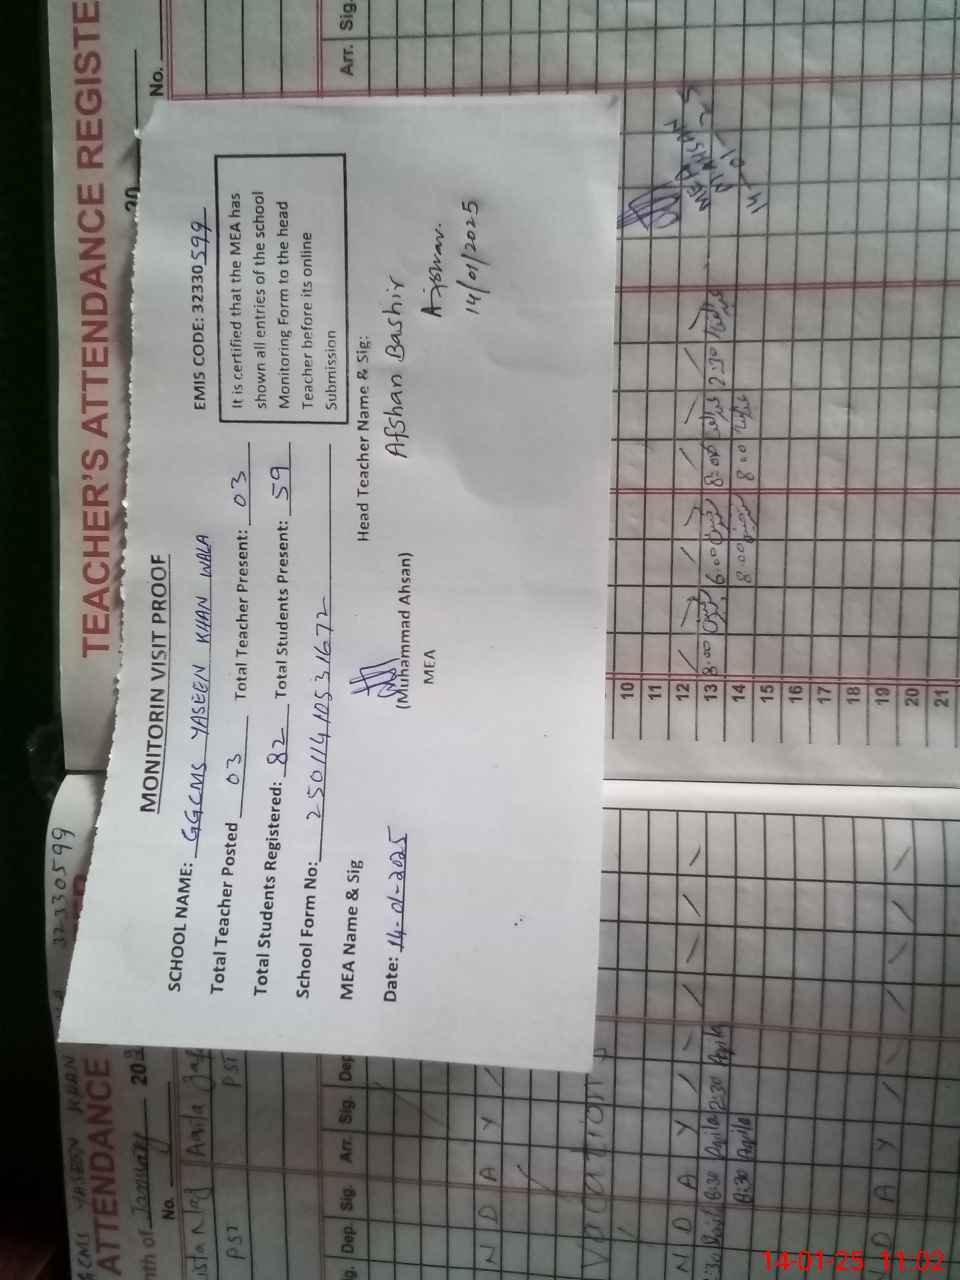 MONITORIN VISIT PROOF
SCHOOL NAME: GGCMS YASEEN KHAN WALA EMIS CODE: 32330599
Total Teacher Posted 03 Total Teacher Present: 03
Total Students Registered: 82 Total Students Present: 59
School Form No: 25011410531672
It is certified that the MEA has
shown all entries of the school
Monitoring Form to the head
Teacher before its online
Submission
MEA Name & Sig
(Muhammad Ahsan)
MEA
Head Teacher Name & Sig:
Afshan Bashir
14/01/2025
Date: 14-01-2025
TEACHER'S ATTENDANCE REGISTE
20
No.
Arr. Sig.
10
11
12
13 8:00
14 8:00 8:00
15
16
17
18
19
20
21
MEA
AHSAN
14-01-25
32330599
GCMS YASEEN KHAN
ATTENDANCE
nth of January 202
No.
Aqila
PST PST
Dep. Sig. Arr. Sig. Dep
N D A Y
Vacation
N D A Y
8:30 Aqila 2:30 Aqila
8:30 Aqila
D A Y
14-01-25 11:02